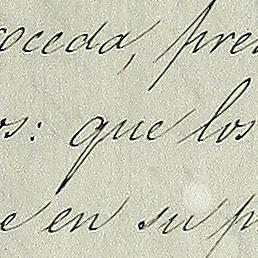 oceda, pre
os: que los
e en su p